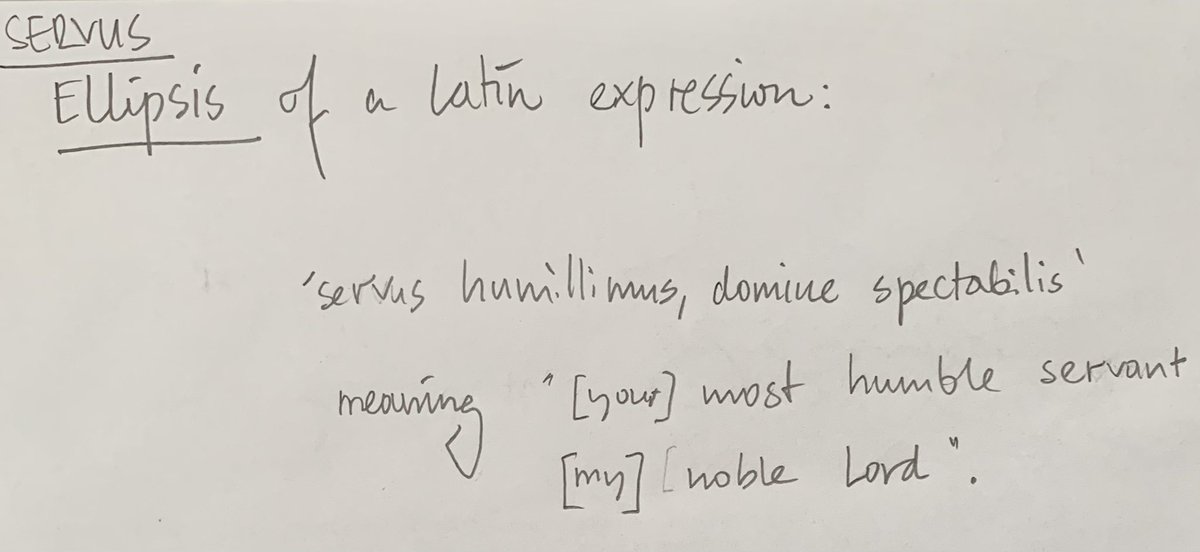 SERVUS
Ellipsis of a latin expression:
'servus humillimus, domine spectabilis'
meaning "[your] most humble servant
[my] [noble Lord".